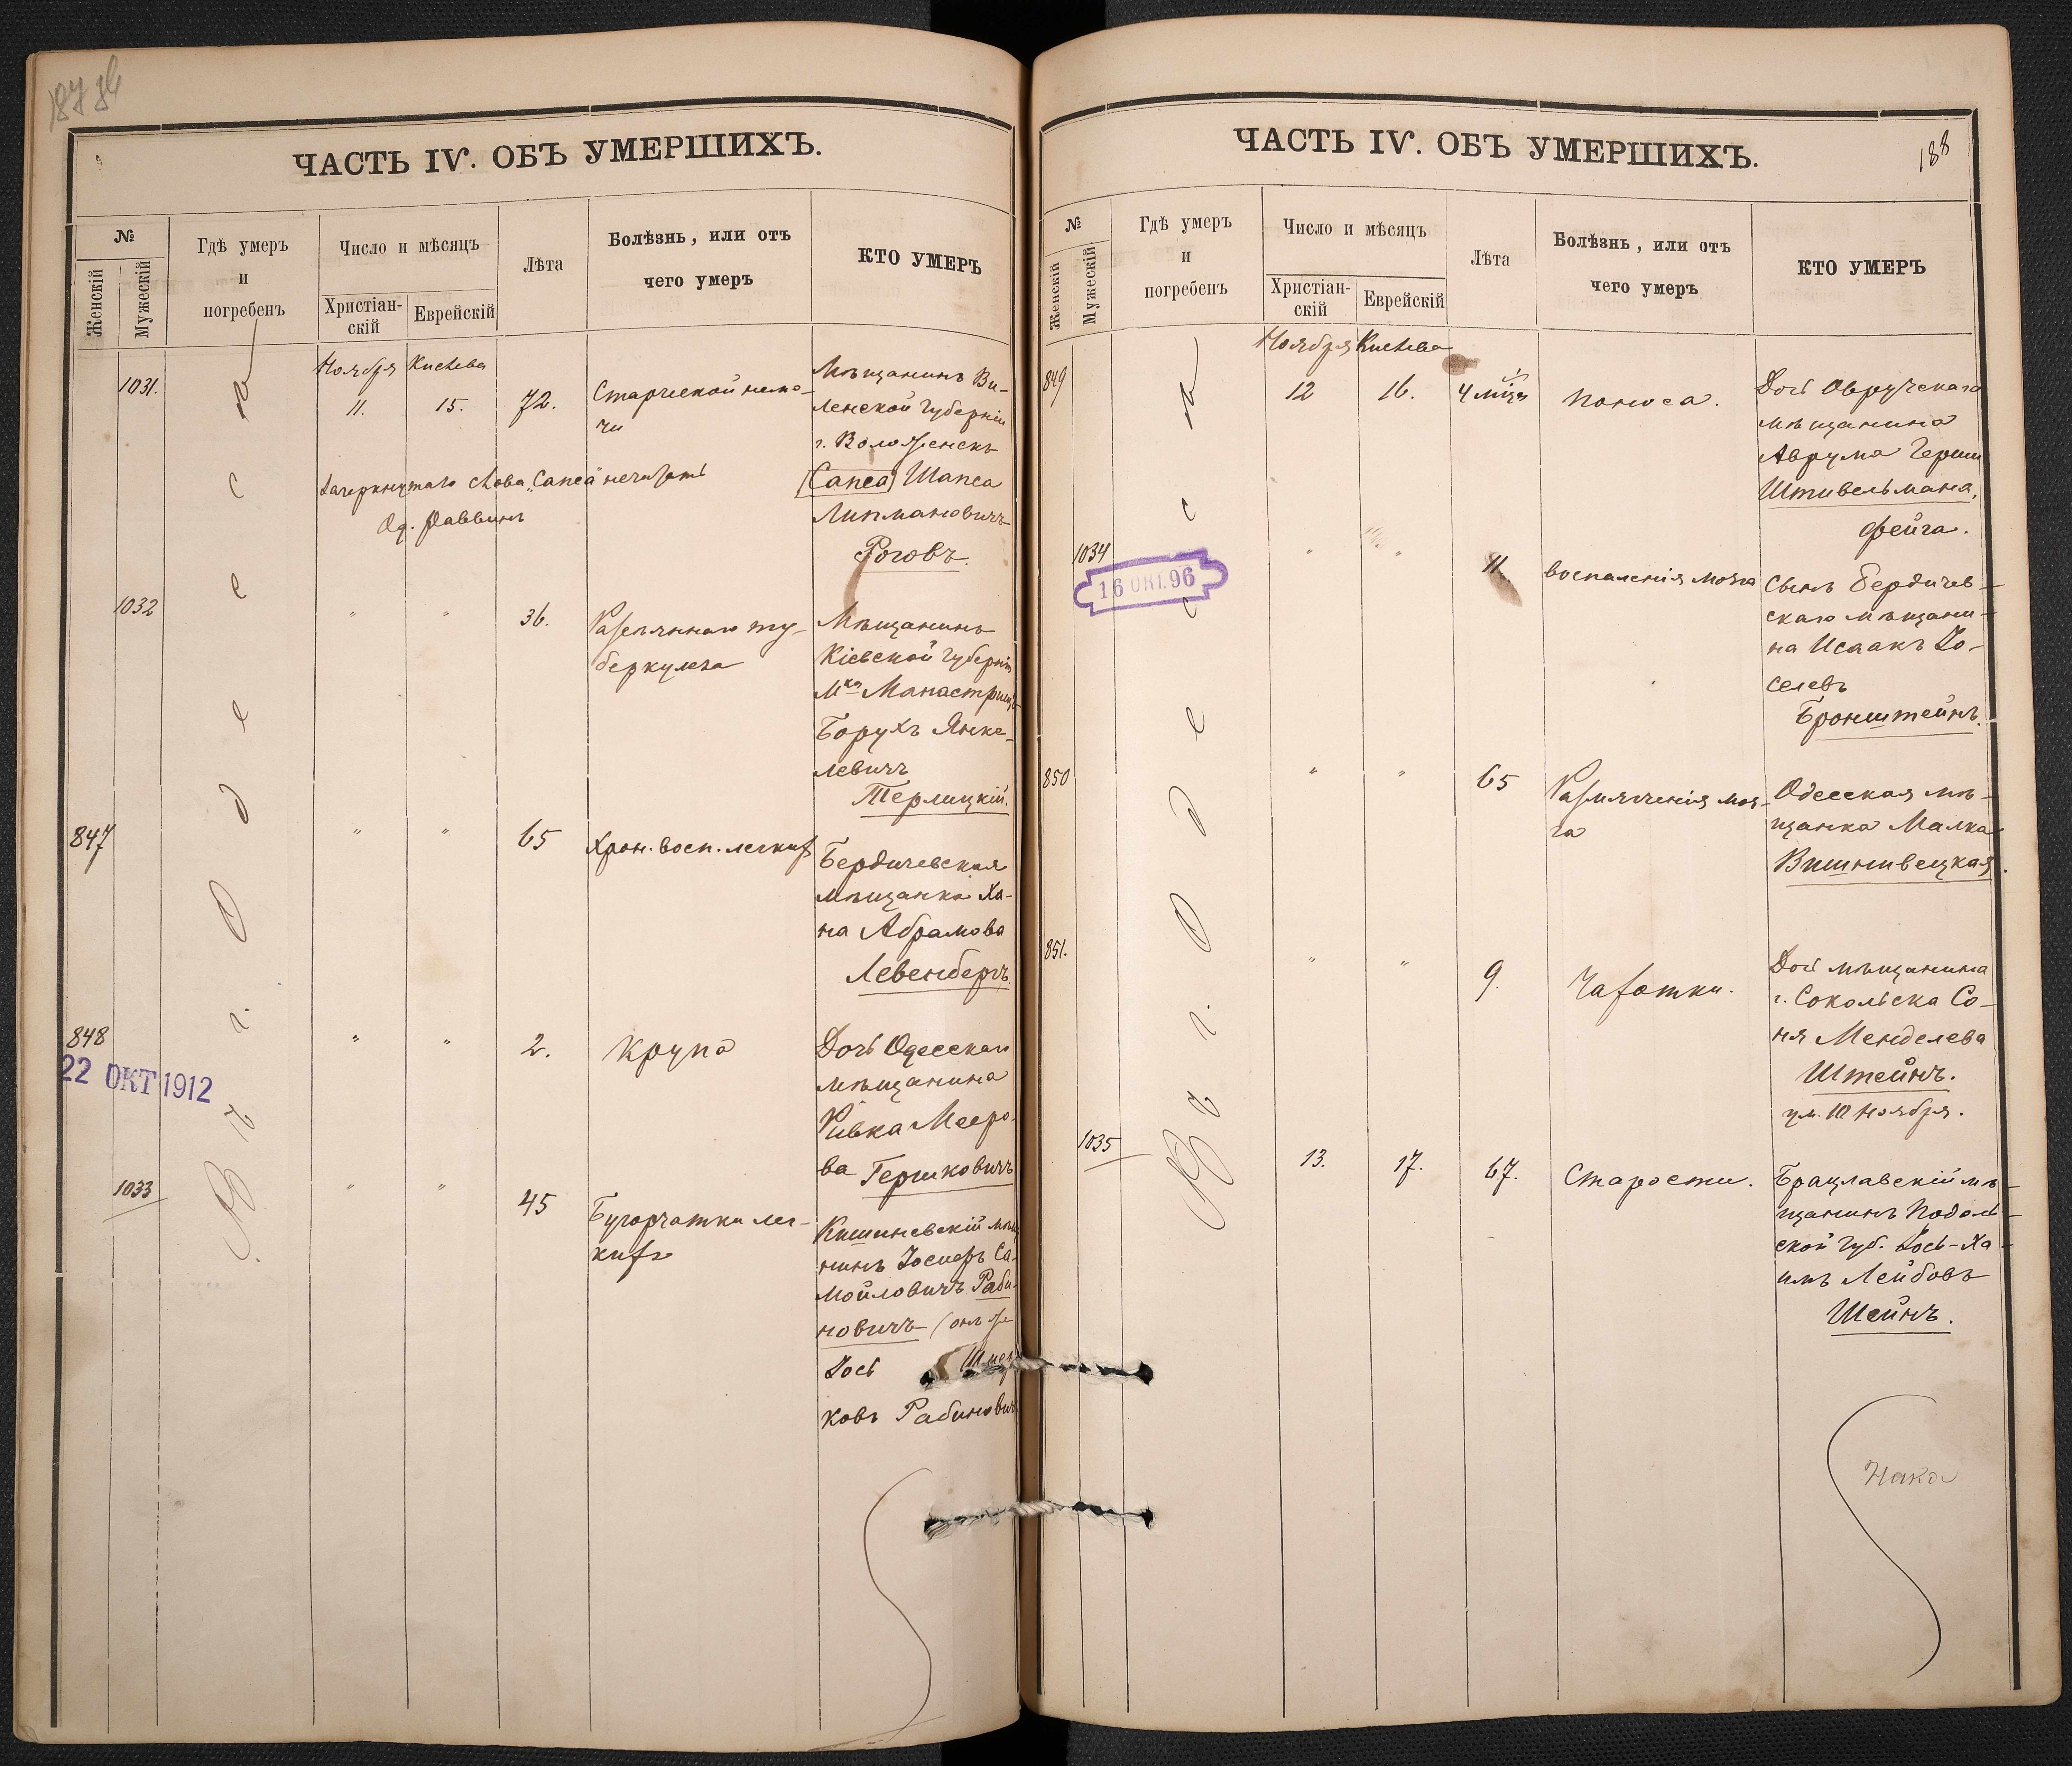 187 зв
ЧАСТЬ IV. ОБЪ УМЕРШИХЪ.
№
Женскій
Мужескій
Гдѣ умеръ
и
погребенъ
Число и мѣсяцъ
Христіан-
скій
Еврейскій
Лѣта
Болѣзнь, или отъ
чего умеръ
КТО УМЕРЪ
Въ г. Одесса
Ноября Кислева
1031. 11. 15. 72. Старческой немо-
чи
Мѣщанинъ Ви-
ленской губерніи
г. Воложенскъ
Сапса Шапса
Липмановичъ
Роговъ.
Зачеркнутаго слова „Сапса" нечитать
Од. Раввинъ
1032 " " 36. Разсѣяннаго ту-
беркулеза
Мѣщанинъ
Кіевской губерніи
Мка Манастрище
Борухъ Янке-
левичъ
Терлицкій.
847 " " 65 Хрон. восп. легкихъ
Бердичевская
мѣщанка Ха-
на Абрамова
Левенбергъ.
848 " " 2. Крупа
22 ОКТ 1912
Дочь Одесскаго
мѣщанина
Ривка Мееро-
ва Гершковичъ
1033 " " 45 Бугорчатки лег-
кихъ
Кишиневскій мѣщ
нинъ Іосифъ Са-
мойловичъ Раби-
новичъ (онъ же
Іось
ковъ Рабинович
ЧАСТЬ IV. ОБЪ УМЕРШИХЪ.
188
№
Женскій
Мужескій
Гдѣ умеръ
и
погребенъ
Число и мѣсяцъ
Христіан-
скій
Еврейскій
Лѣта
Болѣзнь, или отъ
чего умеръ
КТО УМЕРЪ
Въ г. Одесса
Ноября Кислева
849 12 16. 4 мѣца Поноса.
Дочь Овручскаго
мѣщанина
Аврума Герша
Штивельмана,
Фейга.
1034 " " 11 воспаленія мозга
16 ОКТ. 96
Сынъ Бердичев-
скаго мѣщани-
на Исаакъ Іо-
селевъ
Бронштейнъ.
850 " " 65 Размягченія моз-
га
Одесская мѣ-
щанка Малка
Вишнивецкая.
851. " " 9. Чахотки.
Дочь мѣщанина
г. Сокольска Со-
ня Менделева
Штейнъ.
ум. 10 Ноября.
1035 13. 17. 67. Старости.
Брацлавскій мѣ-
щанинъ Подоль-
ской губ. Іось-Ха-
имъ Лейбовъ
Шейнъ.